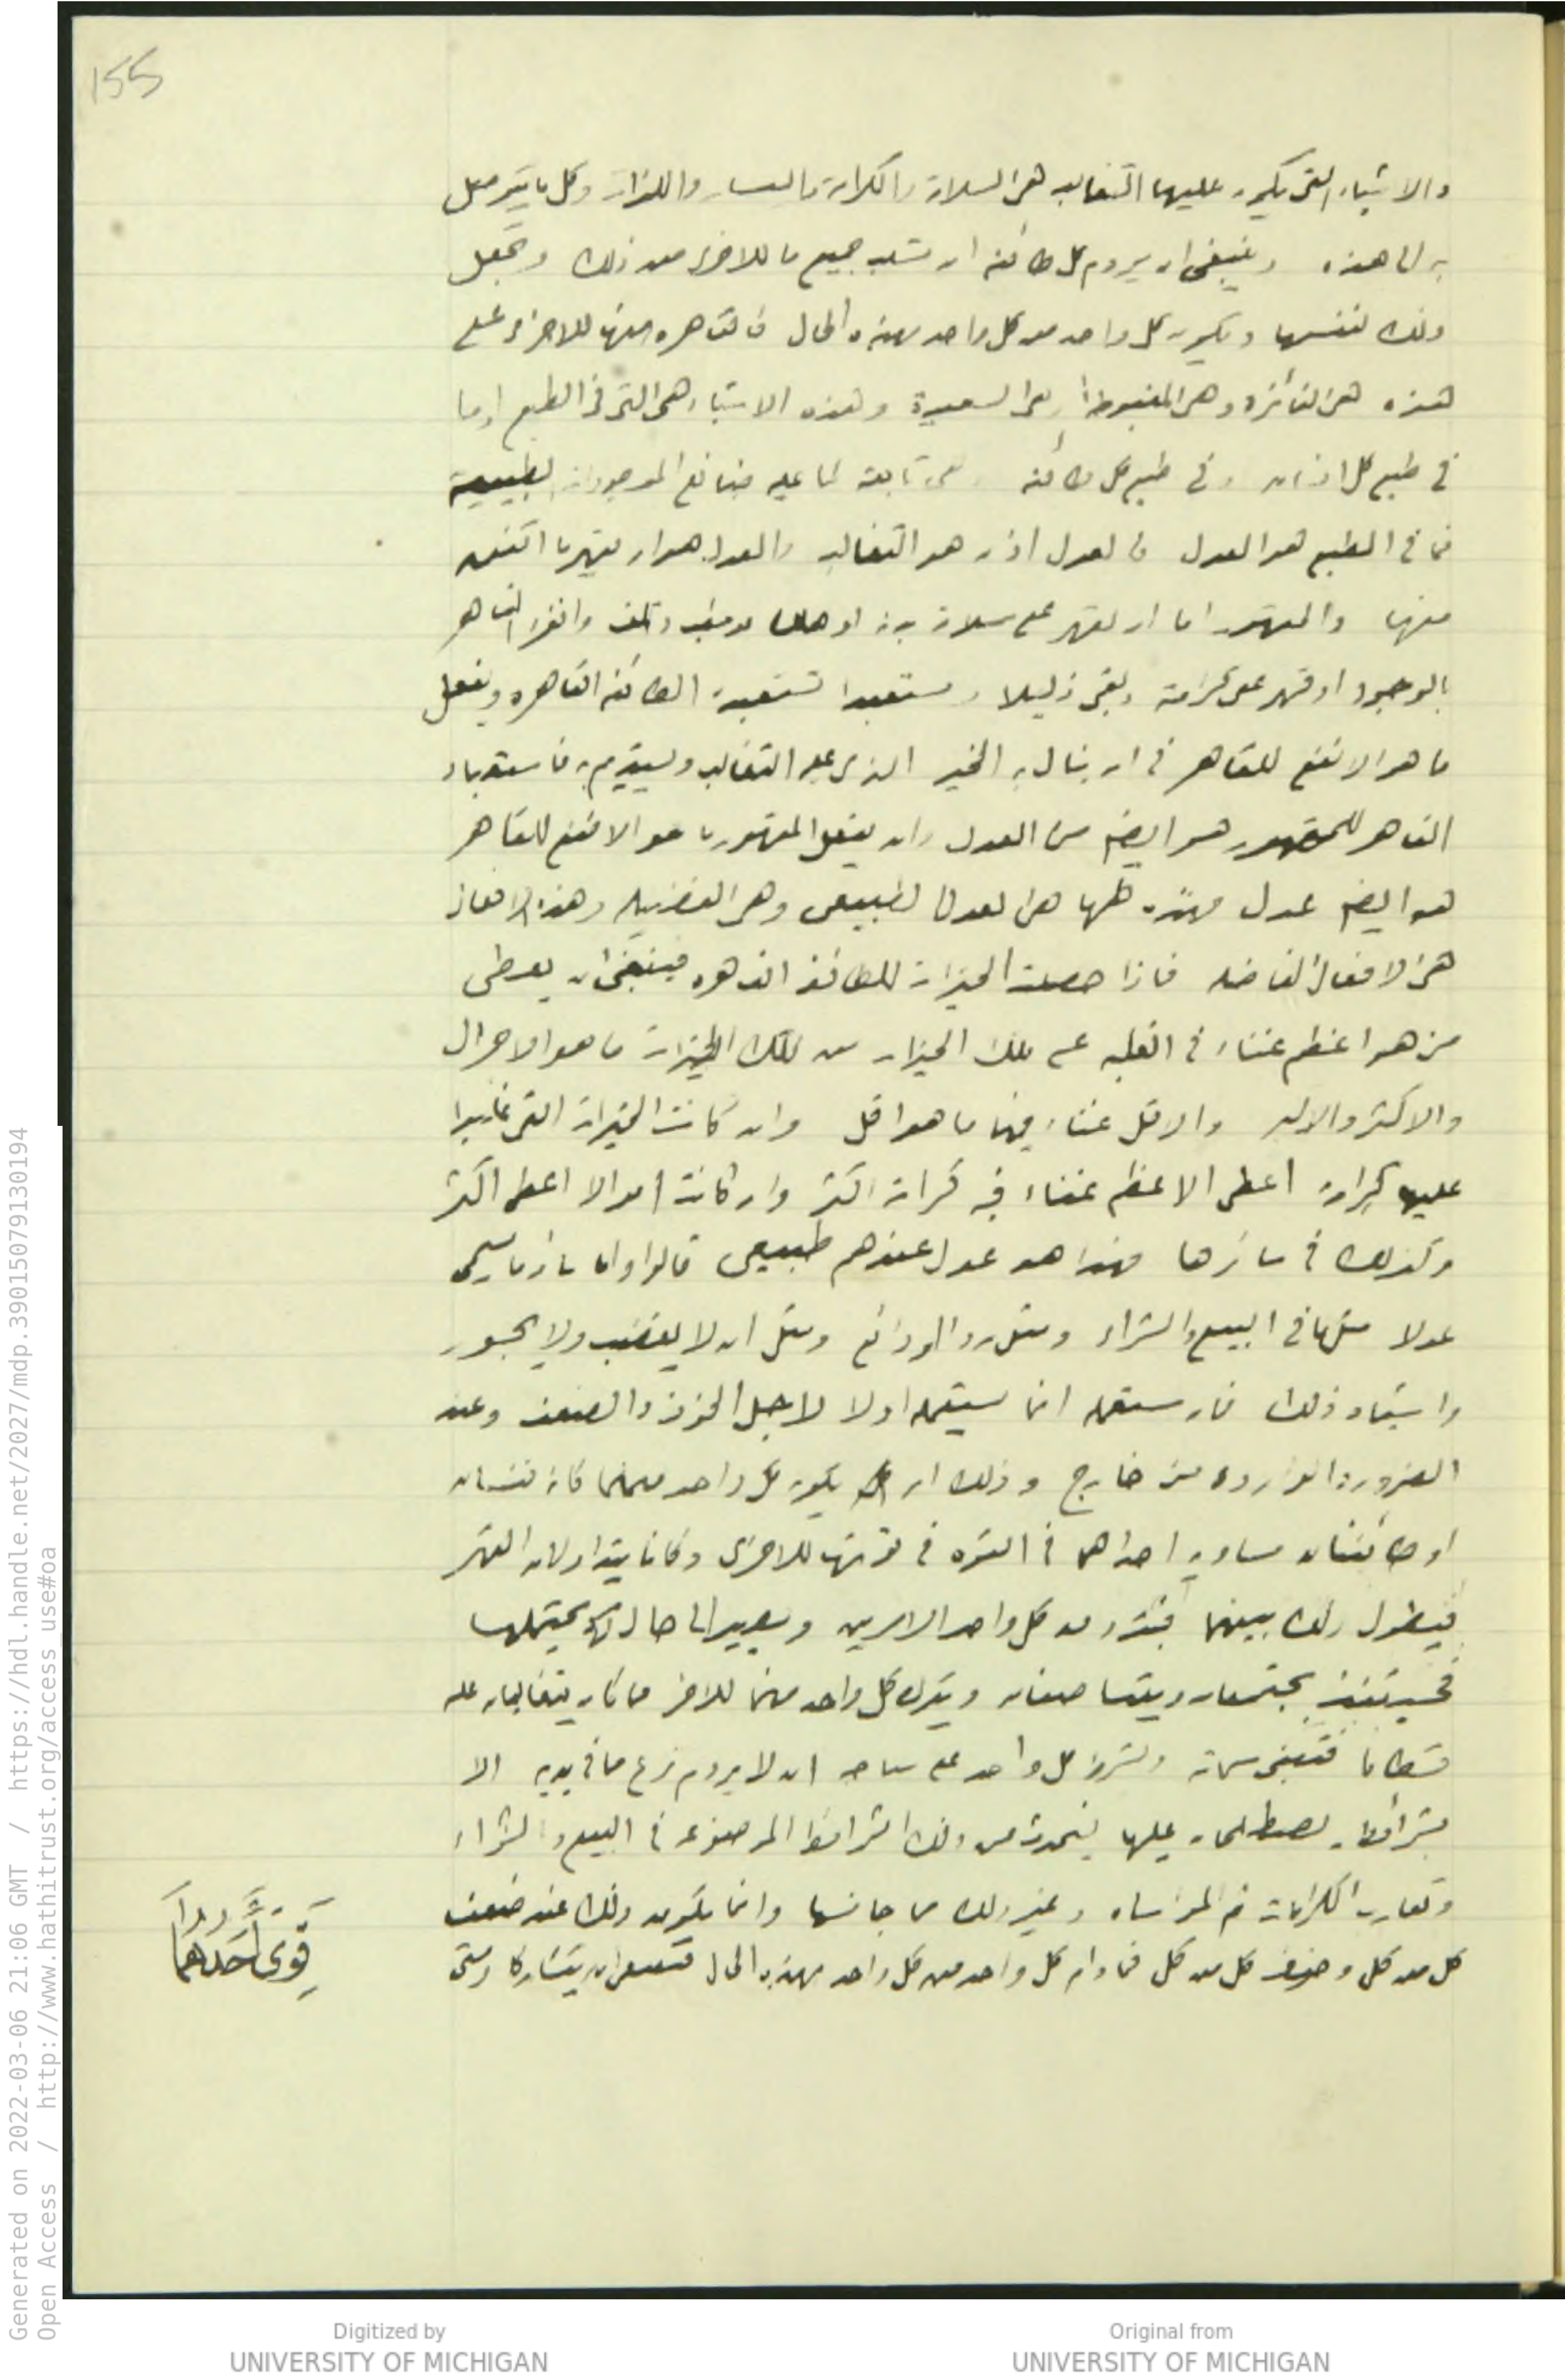 155
والاشياء التى يكون عليها التغالب هى السلامة والكرامة واليسار واللذات وكل ما يتوصل
به الى هذه وينبغى ان يروم كل طائفه ان تسلب جميع ما للاخرى من ذلك وتجعل
ذلك لنفسها ويكون كل واحد من كل واحد بهذه الحال فالقاهره منها للاخرى على
هذه هى الفائزة وهى المغبوطة وهى السعيدة وهذه الاشياء هى التى فى الطبع اما
فى طبع كل انسان او فى طبع كل طائفه وهى تابعة لما عليه طبائع الموجودات الطبيعية
فما فى الطبع هو العدل فالعدل اذن هو التغالب والعدل هو ان يقهر ما اتفق
منها والمقهور اما ان يقهر على سلامة بدنه او هلك وتلف وانفرد القاهر
بالوجود او قهر على كرامته وبقى ذليلا ومستعبدا تستعبده الطائفه القاهره ويفعل
ما هو الانفع للقاهر فى ان ينال به الخير الذى عليه التغالب ويستديم به فاستعباد
القاهر للمقهور هو ايضا من العدل وان يفعل المقهور ما هو الانفع للقاهر
هو ايضا عدل فهذه كلها هى العدل الطبيعى وهى الفضيله وهذه الافعال
هى الافعال الفاضله فاذا حصلت الخيرات للطائفه القاهره فينبغى ان يعطى
من هو اعظم غناء فى الغلبه على تلك الخيرات من تلك الخيرات ما هو
والاكثر والاقل غناء فيها ما هو اقل وان كانت الخيرات التى غلبوا
عليها كرامة اعطى الاعظم غناء فيه كرامة اكثر وان كانت اموالا اعطى اكثر
وكذلك فى سائرها فهذا هو عدل عندهم طبيعى قالوا واما سائر ما يسمى
عدلا مثل ما فى البيع والشراء ومثل رد الودائع ومثل ان لا يغضب ولا يجور
واشباه ذلك فان مستعمله انما يستعمله اولا لاجل الخوف والضعف وعند
الضرورة الواردة من خارج وذلك ان يكون كل واحد منهما كانهما نفسان
او طائفتان مساويه احداهما فى القوه فى قوتها للاخرى وكانا يتداولان القهر
فيطول ذلك بينهما فيذوق كل واحد الامرين ويصير الى حال لا يحتملها
فحينئذ يجتمعان ويتناصفان ويترك كل واحد منهما للاخر مما كانا يتغالبان عليه
قسطا ما فتبقى سماته ويشرط كل واحد على صاحبه ان لا يروم نزع ما فى يديه الا
بشرائط يصطلحان عليها فيحدث من ذلك الشرائط الموضوعه فى البيع والشراء
وتقارب الكرامات ثم المواساه وغير ذلك مما جانسها وانما يكون ذلك عند ضعف
كل من كل وخوف كل من كل فما دام كل واحد من كل واحد بهذه الحال فينبغى ان يتشاركا ومتى
قوى احدهما
Generated on 2022-03-06 21:06 GMT / https://hdl.handle.net/2027/mdp.39015079130194
Open Access / http://www.hathitrust.org/access_use#oa
Digitized by
UNIVERSITY OF MICHIGAN
Original from
UNIVERSITY OF MICHIGAN